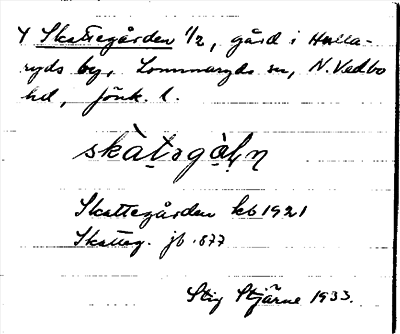 Y Skattegården 1/2, gård i Hulla-
ryds by, Lommaryds sn, N. Vedbo
hd, Jönk. l.
skàtsgòḷṇ
Skattegården kb 1921
Skatteg. jb 1877
Stig Stjärne 1933.